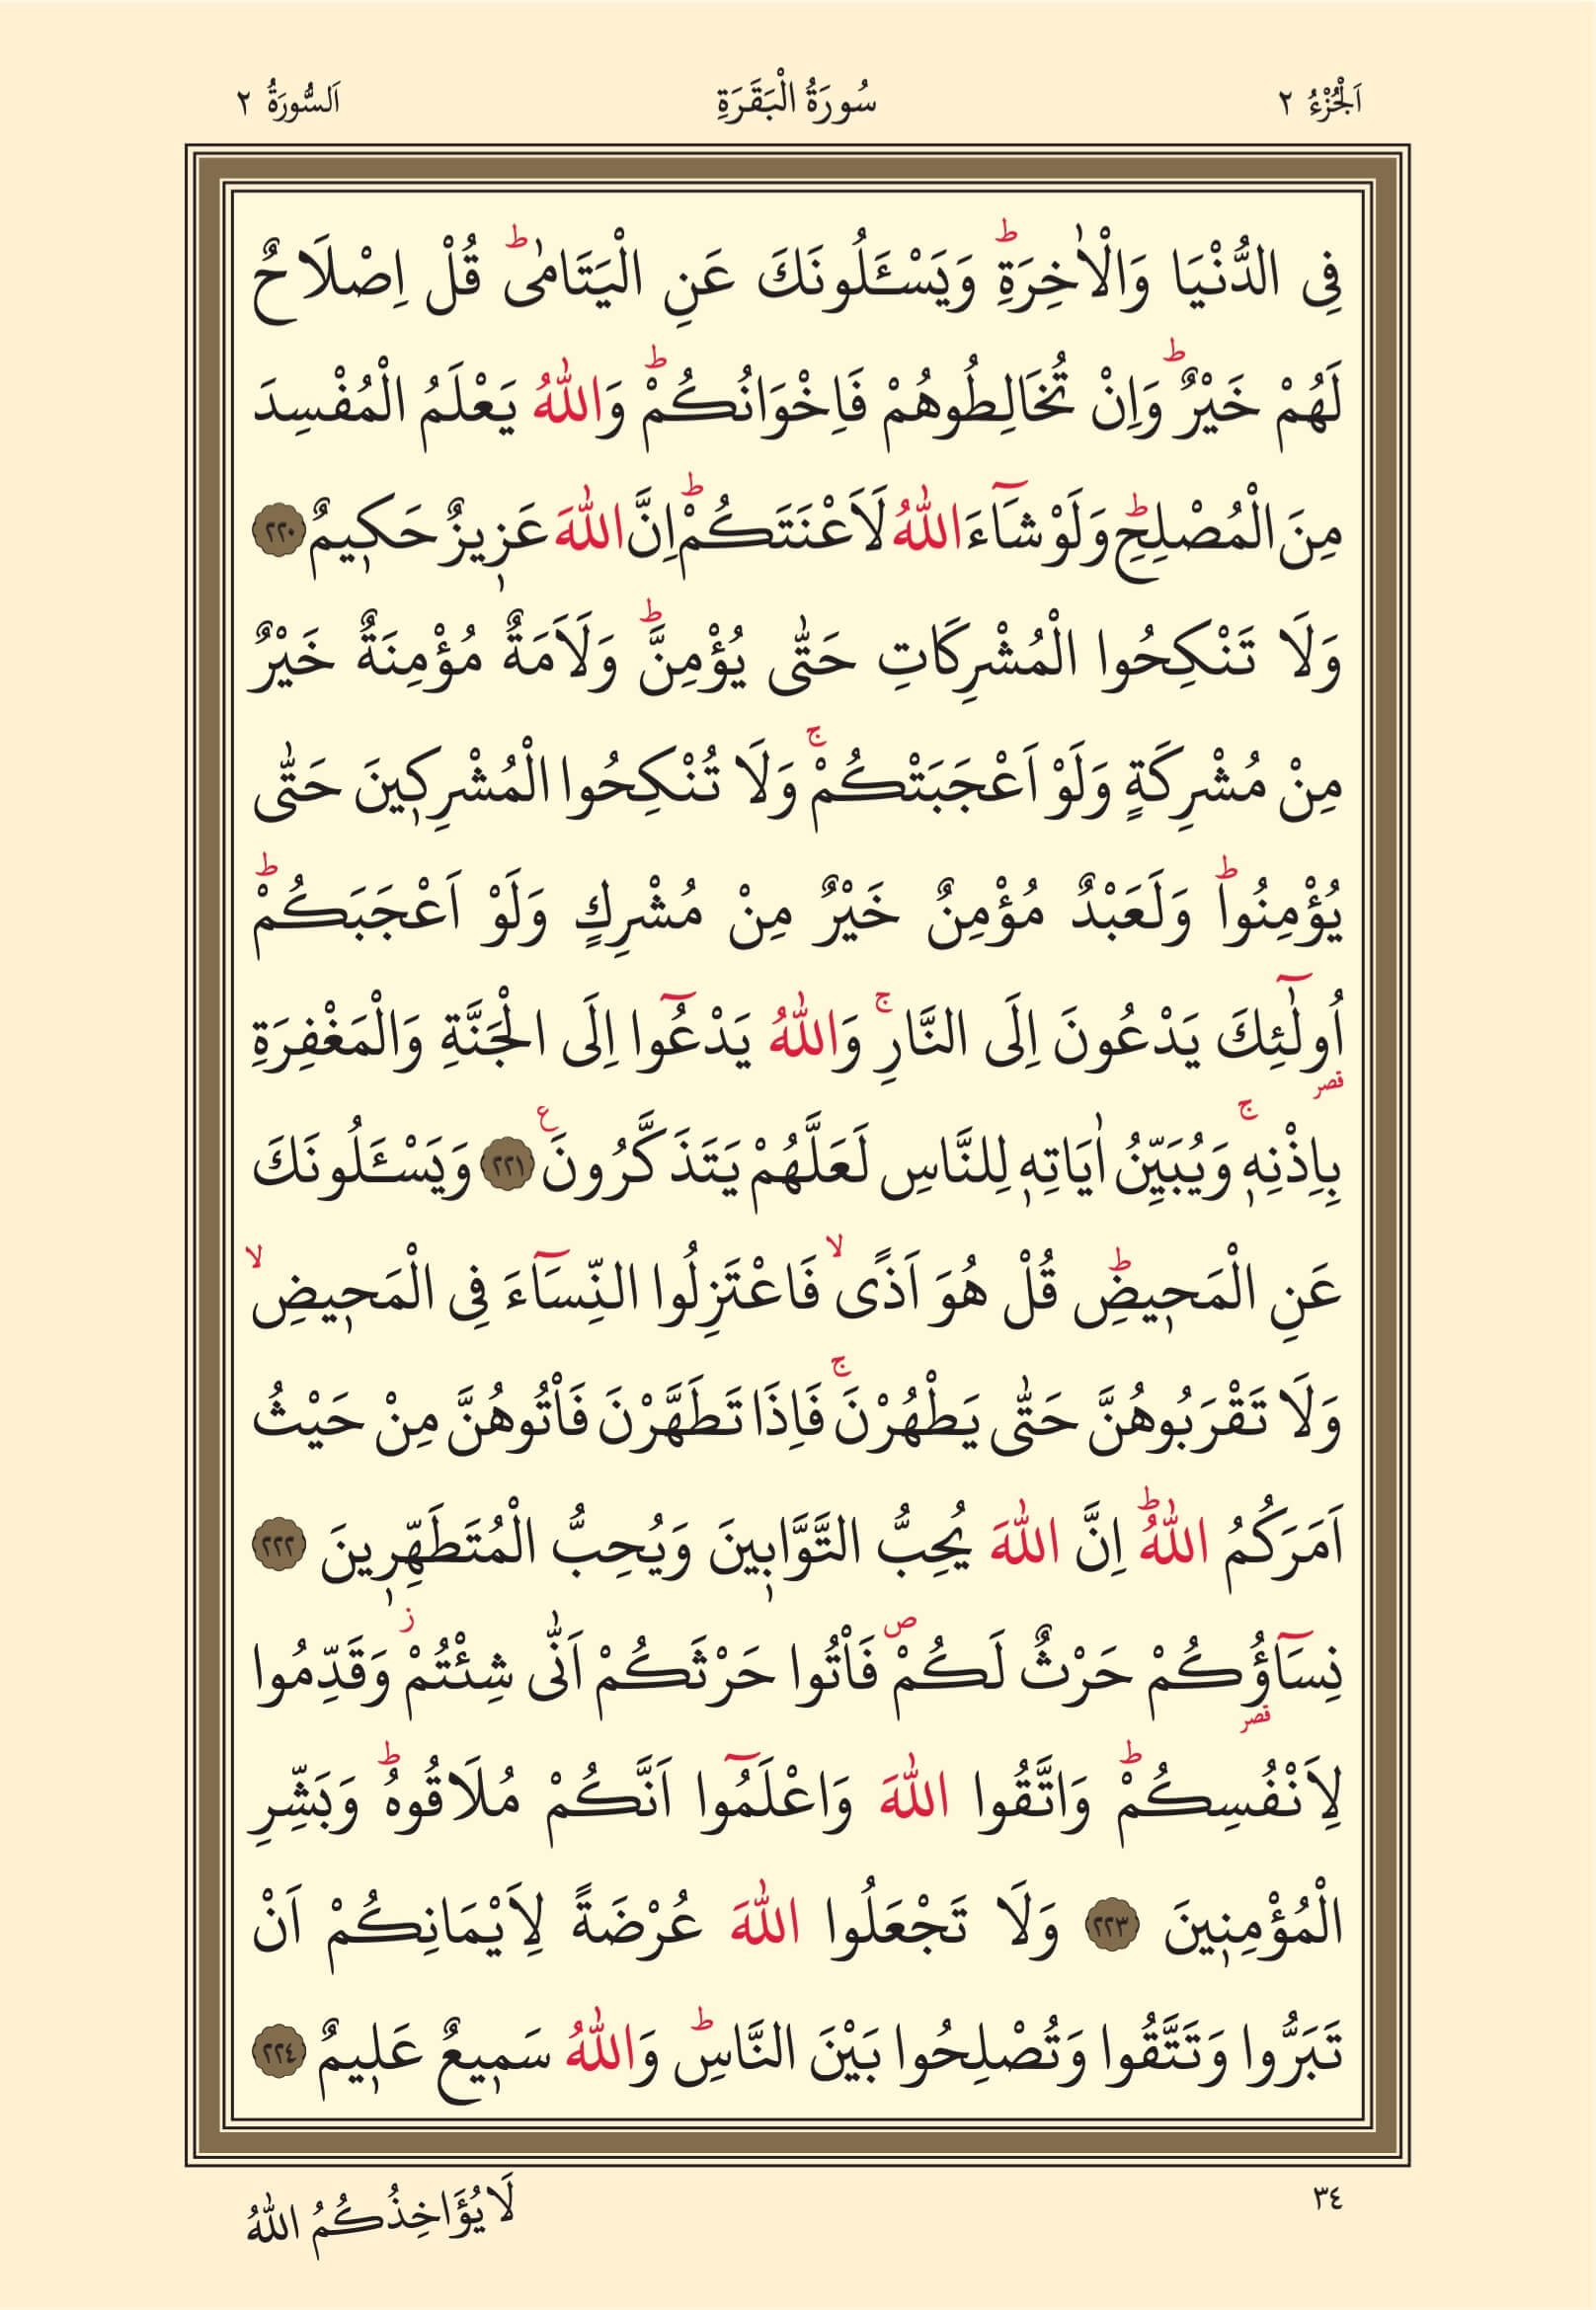 اَلْجُزْءُ ٢
سُورَةُ الْبَقَرَةِ
اَلسُّورَةُ ٢
فِى الدُّنْيَا وَالْاٰخِرَةِۜ وَيَسْـَٔلُونَكَ عَنِ الْيَتَامٰىۜ قُلْ اِصْلَاحٌ
لَهُمْ خَيْرٌۜ وَاِنْ تُخَالِطُوهُمْ فَاِخْوَانُكُمْۜ وَاللّٰهُ يَعْلَمُ الْمُفْسِدَ
مِنَ الْمُصْلِحِۜ وَلَوْ شَٓاءَ اللّٰهُ لَاَعْنَتَكُمْۜ اِنَّ اللّٰهَ عَزٖيزٌ حَكٖيمٌ ٢٢٠
وَلَا تَنْكِحُوا الْمُشْرِكَاتِ حَتّٰى يُؤْمِنَّۜ وَلَاَمَةٌ مُؤْمِنَةٌ خَيْرٌ
مِنْ مُشْرِكَةٍ وَلَوْ اَعْجَبَتْكُمْۚ وَلَا تُنْكِحُوا الْمُشْرِكٖينَ حَتّٰى
يُؤْمِنُواۜ وَلَعَبْدٌ مُؤْمِنٌ خَيْرٌ مِنْ مُشْرِكٍ وَلَوْ اَعْجَبَكُمْۜ
اُو۬لٰٓئِكَ يَدْعُونَ اِلَى النَّارِۚ وَاللّٰهُ يَدْعُٓوا اِلَى الْجَنَّةِ وَالْمَغْفِرَةِ
قصر
بِاِذْنِهٖۚ وَيُبَيِّنُ اٰيَاتِهٖ لِلنَّاسِ لَعَلَّهُمْ يَتَذَكَّرُونَ ع ٢٢١ وَيَسْـَٔلُونَكَ
عَنِ الْمَحٖيضِۜ قُلْ هُوَ اَذًىۙ فَاعْتَزِلُوا النِّسَٓاءَ فِى الْمَحٖيضِۙ
وَلَا تَقْرَبُوهُنَّ حَتّٰى يَطْهُرْنَۚ فَاِذَا تَطَهَّرْنَ فَاْتُوهُنَّ مِنْ حَيْثُ
اَمَرَكُمُ اللّٰهُۜ اِنَّ اللّٰهَ يُحِبُّ التَّوَّابٖينَ وَيُحِبُّ الْمُتَطَهِّرٖينَ ٢٢٢
نِسَٓاؤُ۬كُمْ حَرْثٌ لَكُمْ ص فَاْتُوا حَرْثَكُمْ اَنّٰى شِئْتُمْ ز وَقَدِّمُوا
قصر
لِاَنْفُسِكُمْۜ وَاتَّقُوا اللّٰهَ وَاعْلَمُٓوا اَنَّكُمْ مُلَاقُوهُۜ وَبَشِّرِ
الْمُؤْمِنٖينَ ٢٢٣ وَلَا تَجْعَلُوا اللّٰهَ عُرْضَةً لِاَيْمَانِكُمْ اَنْ
تَبَرُّوا وَتَتَّقُوا وَتُصْلِحُوا بَيْنَ النَّاسِۜ وَاللّٰهُ سَمٖيعٌ عَلٖيمٌ ٢٢٤
٣٤
لَا يُؤَاخِذُكُمُ اللّٰهُ